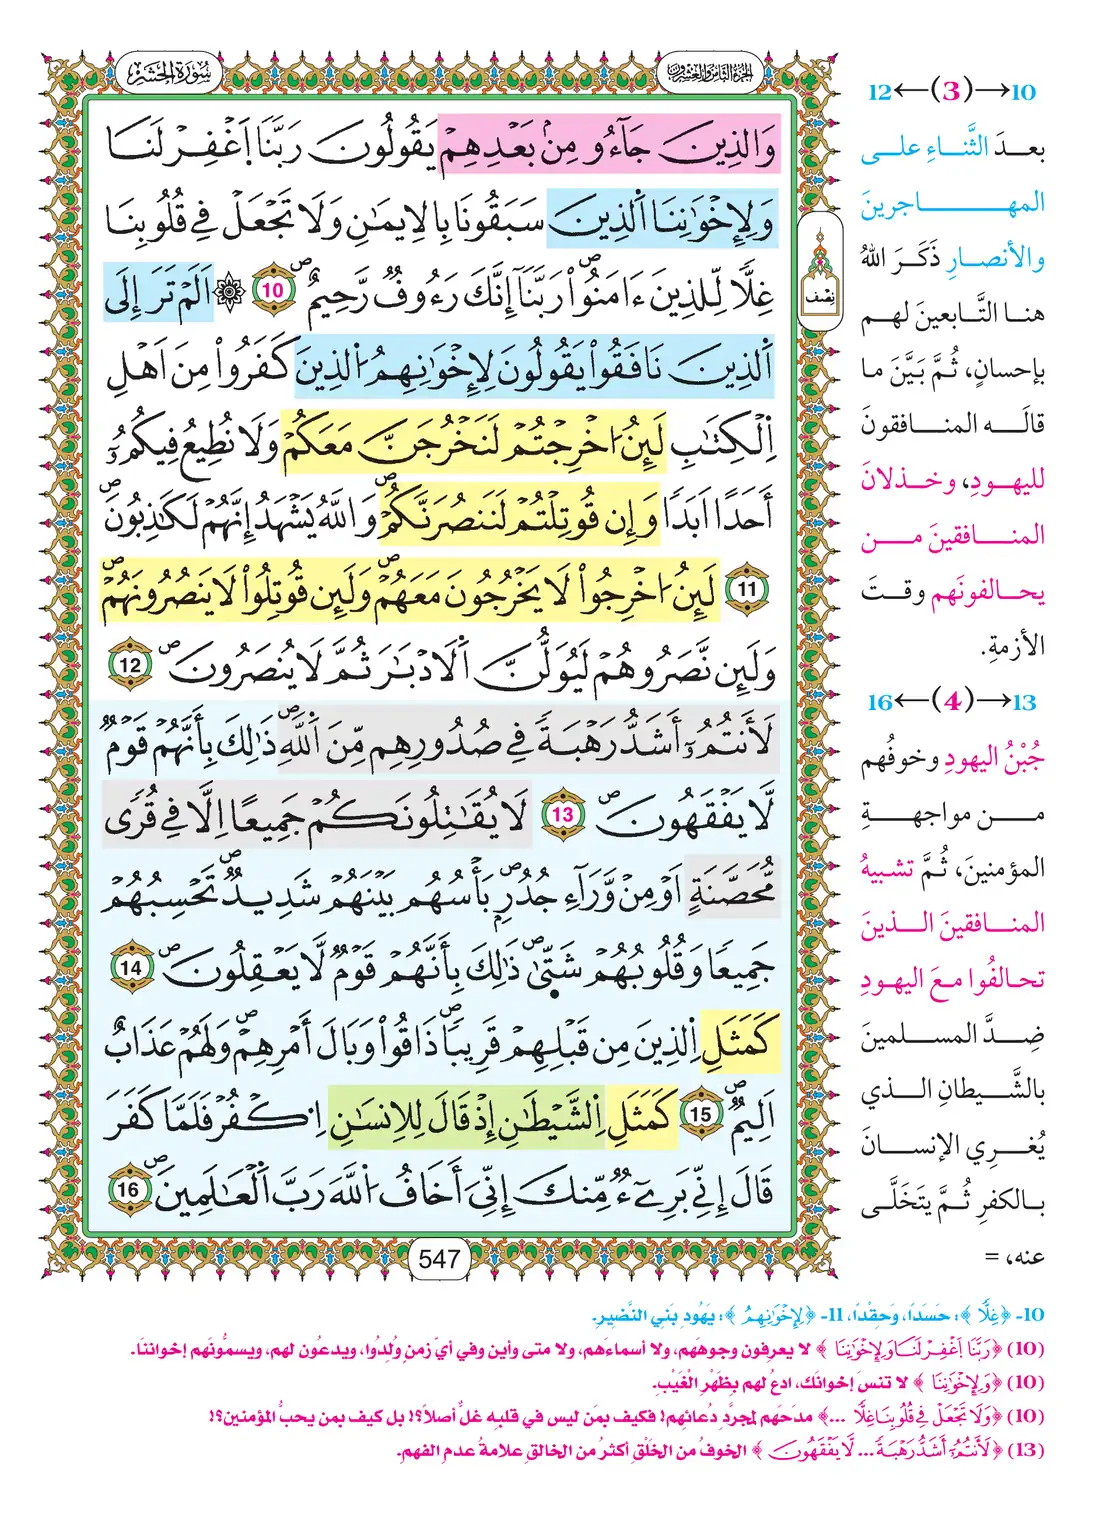 سُورَةُ الحَشْرِ
الجُزءُ الثَّامِنُ وَالعِشْرُونَ
وَالذِينَ جَآءُو مِنۢ بَعْدِهِمْ يَقُولُونَ رَبَّنَا اَغْفِرْ لَنَا
وَلِإِخْوَٰنِنَا اَلذِينَ سَبَقُونَا بِالِايمَٰنِ وَلَا تَجْعَلْ فِے قُلُوبِنَا
غِلّٗا لِّلذِينَ ءَامَنُواْۖ رَبَّنَآ إِنَّكَ رَءُوفٞ رَّحِيمٌۖ 10 ۞ اَلَمْ تَرَ إِلَي
اَلذِينَ نَافَقُواْ يَقُولُونَ لِإِخْوَٰنِهِمُ اُلذِينَ كَفَرُواْ مِنَ اَهْلِ
اِلْكِتَٰبِ لَئِنُ اخْرِجْتُمْ لَنَخْرُجَنَّ مَعَكُمْ وَلَا نُطِيعُ فِيكُمُۥٓ
أَحَداً اَبَداٗ وَإِن قُوتِلْتُمْ لَنَنصُرَنَّكُمْۖ وَاللَّهُ يَشْهَدُ إِنَّهُمْ لَكَٰذِبُونَۖ
11 لَئِنُ اخْرِجُواْ لَا يَخْرُجُونَ مَعَهُمْۖ وَلَئِن قُوتِلُواْ لَا يَنصُرُونَهُمْۖ
وَلَئِن نَّصَرُوهُمْ لَيُوَلُّنَّ اَلَادْبَٰرَ ثُمَّ لَا يُنصَرُونَۖ 12
لَأَنتُمُۥٓ أَشَدُّ رَهْبَةٗ فِے صُدُورِهِم مِّنَ اَللَّهِۖ ذَٰلِكَ بِأَنَّهُمْ قَوْمٞ
لَّا يَفْقَهُونَۖ 13 لَا يُقَٰتِلُونَكُمْ جَمِيعاً اِلَّا فِے قُرٗى
مُّحَصَّنَةٍ اَوْ مِنْ وَّرَآءِ جُدُرِۢۖ بَأْسُهُم بَيْنَهُمْ شَدِيدٞۖ تَحْسِبُهُمْ
جَمِيعاٗ وَقُلُوبُهُمْ شَتَّيٰۖ ذَٰلِكَ بِأَنَّهُمْ قَوْمٞ لَّا يَعْقِلُونَۖ 14
كَمَثَلِ اِلذِينَ مِن قَبْلِهِمْ قَرِيباٗۖ ذَاقُواْ وَبَالَ أَمْرِهِمْۖ وَلَهُمْ عَذَابٌ
اَلِيمٞۖ 15 كَمَثَلِ اِلشَّيْطَٰنِ إِذْ قَالَ لِلِانسَٰنِ اِ۟كْفُرْ فَلَمَّا كَفَرَ
قَالَ إِنِّے بَرِےٓءٞ مِّنكَ إِنِّيَ أَخَافُ اُللَّهَ رَبَّ اَلْعَٰلَمِينَۖ 16
نِصْف
547
12←(3)→10
بعدَ الثَّناءِ على
المهاجرينَ
والأنصارِ ذَكَرَ اللهُ
هنا التَّابعينَ لهم
بإحسانٍ، ثُمَّ بَيَّنَ ما
قالَه المنافقونَ
لليهودِ، وخذلانَ
المنافقينَ من
يحالفونَهم وقتَ
الأزمةِ.
16←(4)→13
جُبْنُ اليهودِ وخوفُهم
من مواجهةِ
المؤمنينَ، ثُمَّ تشبيهُ
المنافقينَ الذينَ
تحالفُوا معَ اليهودِ
ضِدَّ المسلمينَ
بالشَّيطانِ الذي
يُغرِي الإنسانَ
بالكفرِ ثُمَّ يتَخَلَّى
عنه، =
10- ﴿غِلّٗا﴾: حَسَدًا، وَحِقْدًا، 11- ﴿لِإِخْوَٰنِهِمُ﴾: يَهُودِ بَنِي النَّضِيرِ.
(10) ﴿رَبَّنَا اَغْفِرْ لَنَا وَلِإِخْوَٰنِنَا﴾ لا يعرفون وجوهَهم، ولا أسماءَهم، ولا متى وأين وفي أيِّ زمنٍ وُلِدُوا، ويدعُون لهم، ويسمُّونَهم إخواننَا.
(10) ﴿وَلِإِخْوَٰنِنَا﴾ لا تنسَ إخوانَك، ادعُ لهم بِظَهْرِ الْغَيْبِ.
(10) ﴿وَلَا تَجْعَلْ فِے قُلُوبِنَا غِلّٗا ...﴾ مدَحَهم لمجرَّدِ دُعائِهم! فكيف بمَن ليس في قلبِه غلٌّ أصلاً؟! بل كيف بمن يحبُّ المؤمنين؟!
(13) ﴿لَأَنتُمُۥٓ أَشَدُّ رَهْبَةٗ ... لَّا يَفْقَهُونَ﴾ الخوفُ من الخَلْقِ أكثرُ من الخالقِ علامةُ عدم الفهم.